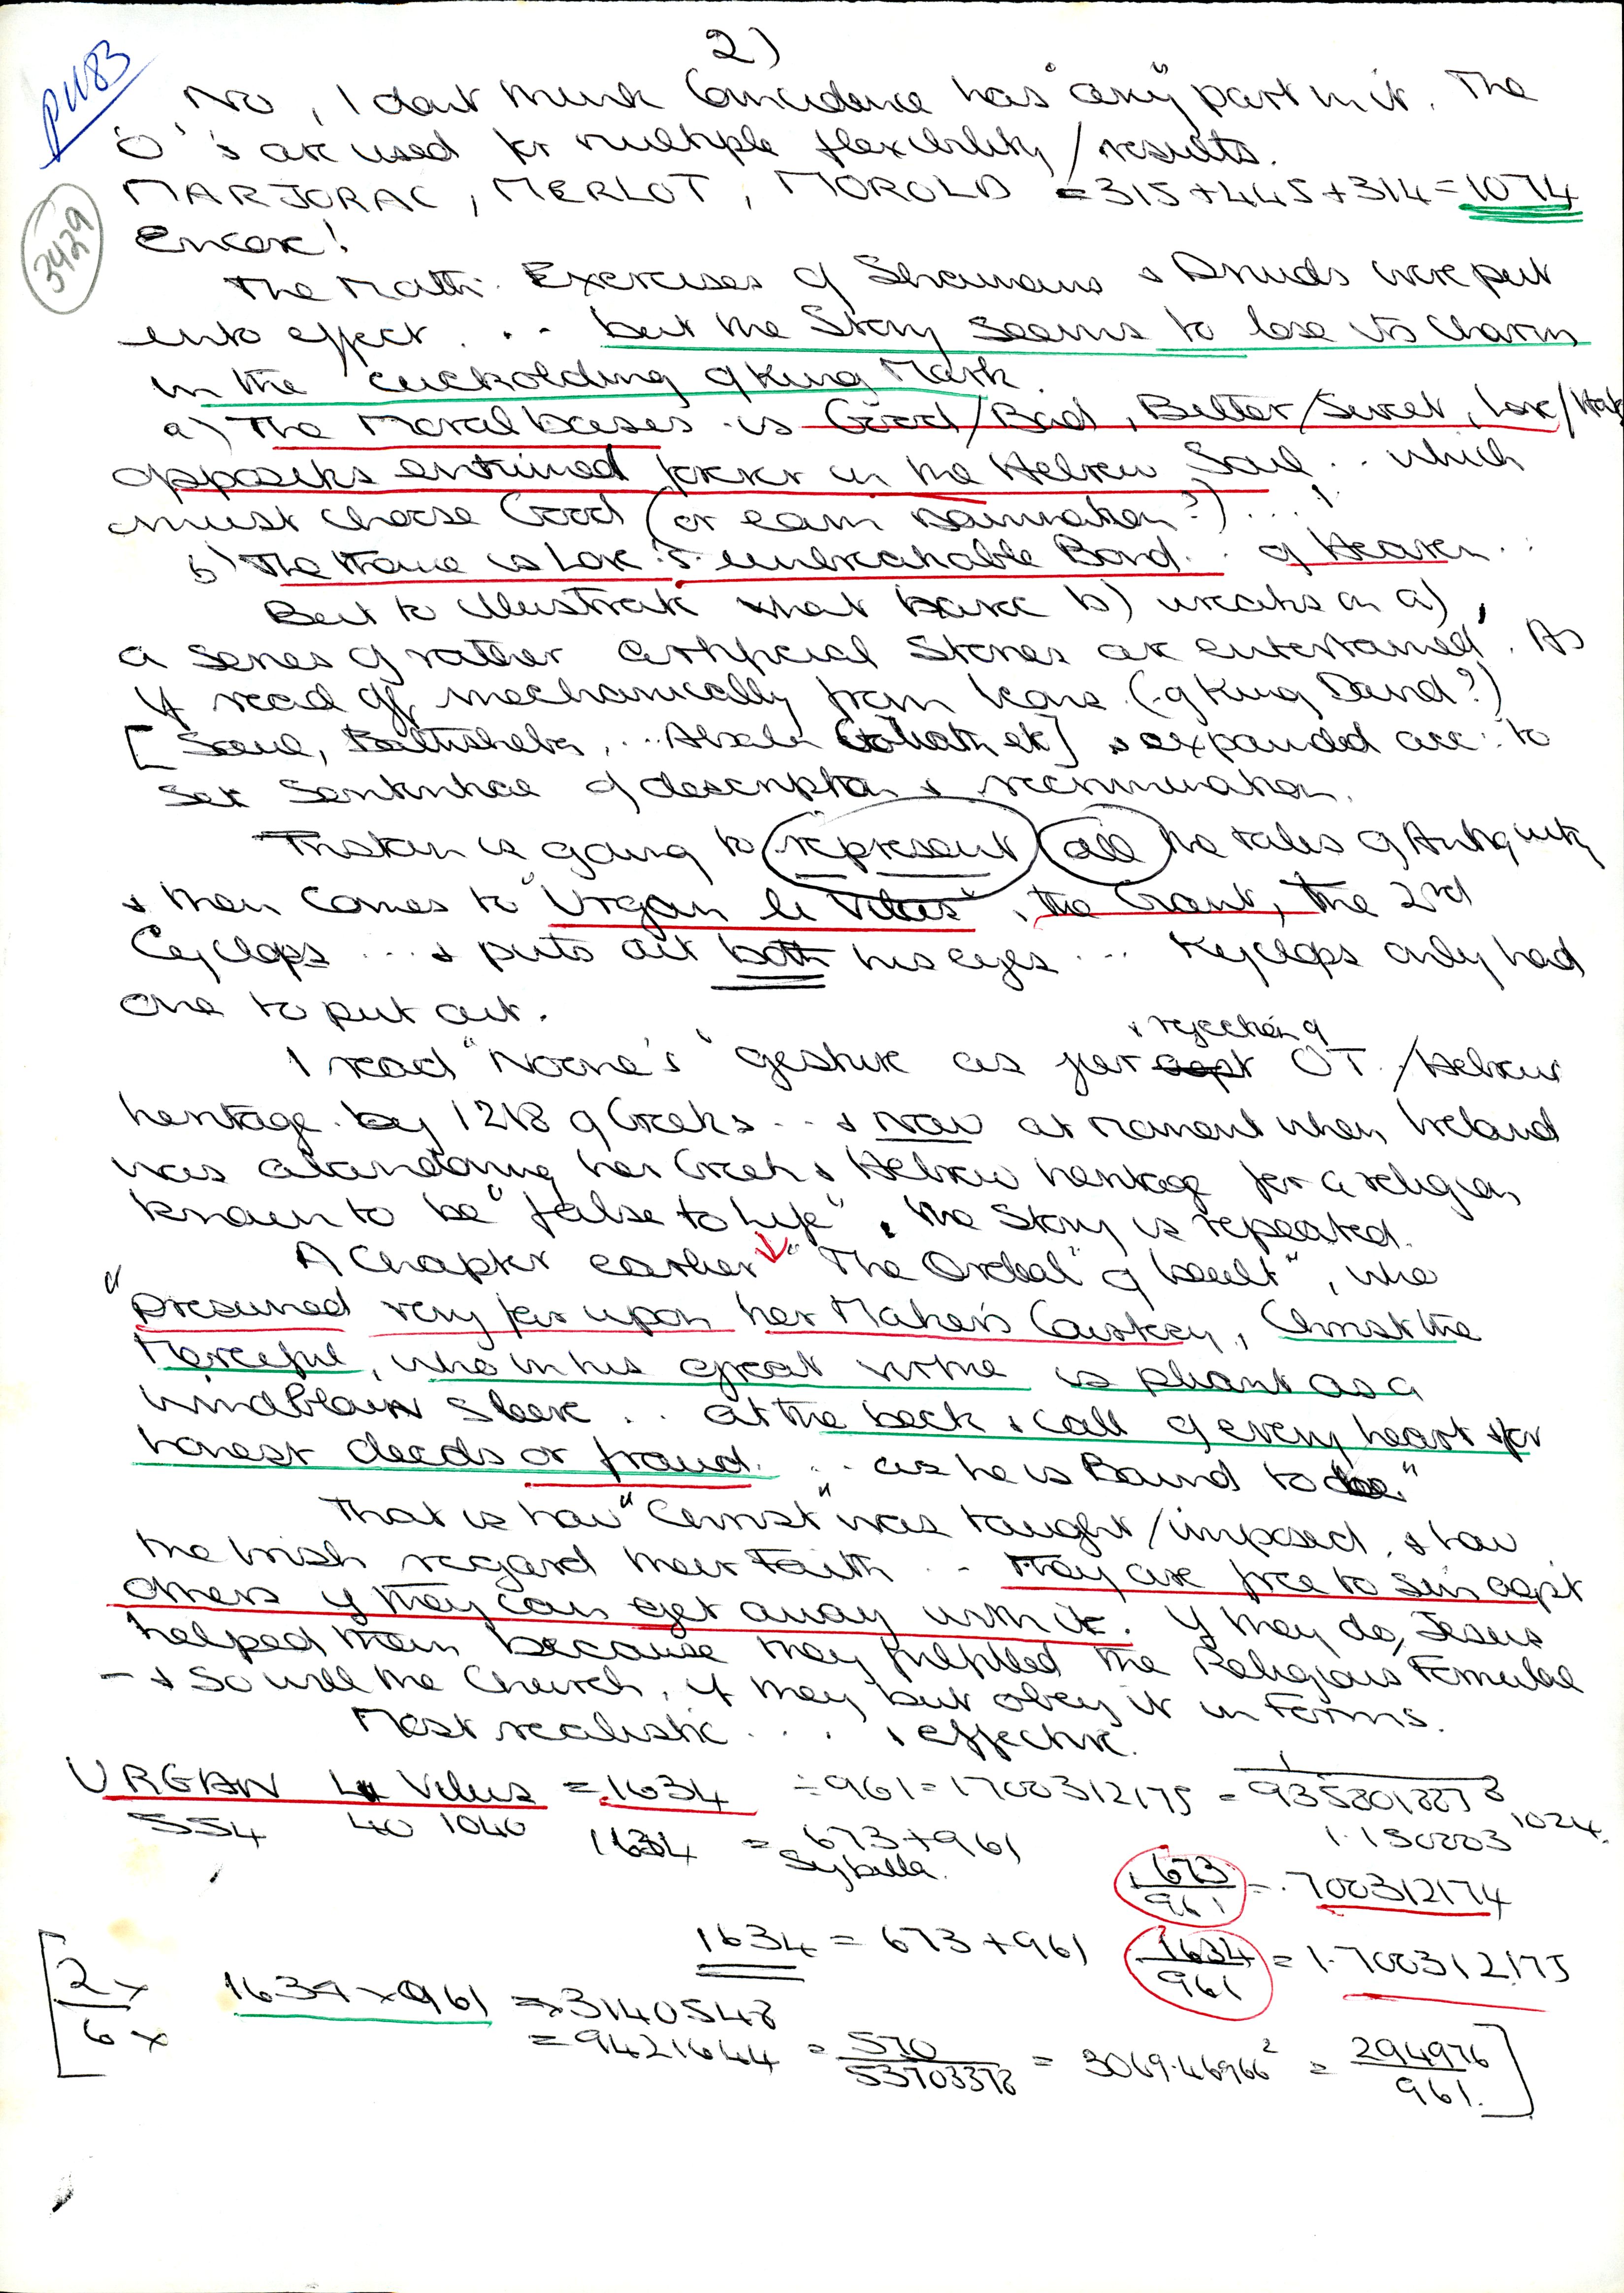 2)
p1183
No, I dont think Coincidence has "any" part in it. The
'O''s are used for multiple flexibility/results.
MARJORAC, MERLOT, MOROLD = 315+445+314=1074
3429
Encore!
The Math: Exercises of Shamans & Druids were put
into effect . . . but the Story seems to lose its charm
in the cuckolding of King Mark.
a) The Moral bases is Good/Bad, Bitter/Sweet, Love/Hate
opposites entwined forever in the Hebrew Soul . . which
must choose Good (or earn Damnation?) . . . !
b) The Theme is Love's unbreakable Bond . . of Heaven . .
But to illustrate what b) wreaks on a),
a series of rather artificial Stories are entertained. As
if read off mechanically from (of King David?)
[Saul, Bathsheba, . . . Goliath etc] & expanded acc: to
set of description & recrimination.
Tristan is going to represent all the tales of Antiquity
& then comes to "Urgan li Vilus", the Giant, the 2nd
Cyclops . . . & puts out both his eyes . . . Kyclops only had
one to put out.
& rejection of
I read "Noone's" gesture as for OT/Hebrew
heritage by 1218 of Greeks . . & now at moment when Ireland
was abandoning her Greek & Hebrew heritage for a religion
known to be "false to Life", the Story is repeated.
A Chapter earlier "The Ordeal" of Iseult", who
"presumed very far upon her Maker's Courtesy, Christ the
Merciful, who in his great virtue is pliant as a
windblown sleeve . . at the beck & call of every heart for
honest deeds or fraud . . . as he is Bound to be."
That is how "Christ" was taught/imposed, & how
the Irish regard their Faith . . They are free to sin agst
others if they can get away with it. If they do, Jesus
helped them because they fulfilled the Religious Formulae
— & So will the Church, if they but obey it in Forms.
Most realistic . . . . & effective.
URGAN Li Vilus = 1634 ÷961=1700312175 = 1
9358018878
554 40 1040 1634 = 673+961 1.150003 1024.
Sybilla.
673/961 = .700312174
1634 = 673+961 1634/961 = 1.700312175
[2x 1634 x 961 = 3140548
6x = 9421644 = 570/53703378 = 3069.46966² = 294976/961.]